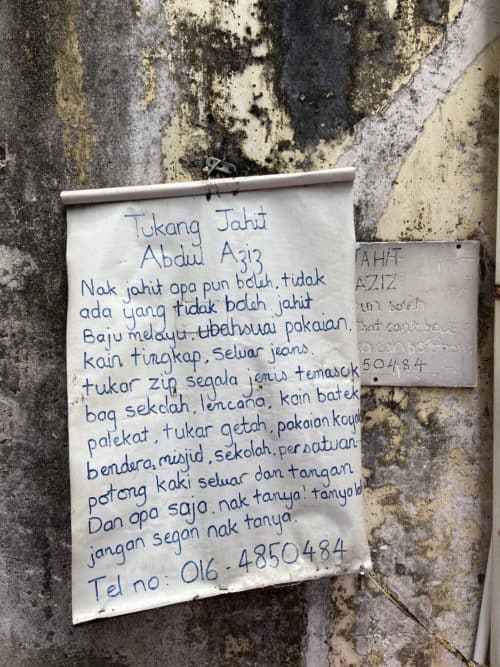 Tukang Jahit
Abdul Aziz
Nak jahit apa pun boleh, tidak
ada yang tidak boleh jahit
Baju melayu, ubahsuai pakaian,
kain tingkap, seluar jeans.
tukar zip segala jenis temasok
bag sekolah, lencana, kain batek
palekat, tukar getah, pakaian
bendera, misjid, sekolah, persatuan
potong kaki seluar dan tangan
Dan apa saja. nak tanya! tanya
jangan segan nak tanya.
Tel no: 016-4850484
AHIT
AZIZ
50484